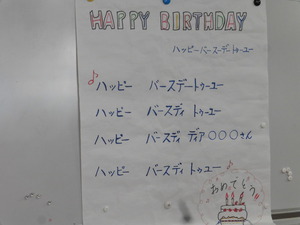 HAPPY BIRTHDAY
ハッピーバースデートゥーユー
♪ハッピー バースデートゥーユー
ハッピー バースディ トゥユー
ハッピー バースディ ディア〇〇〇さん
ハッピー バースディ トゥユー♪